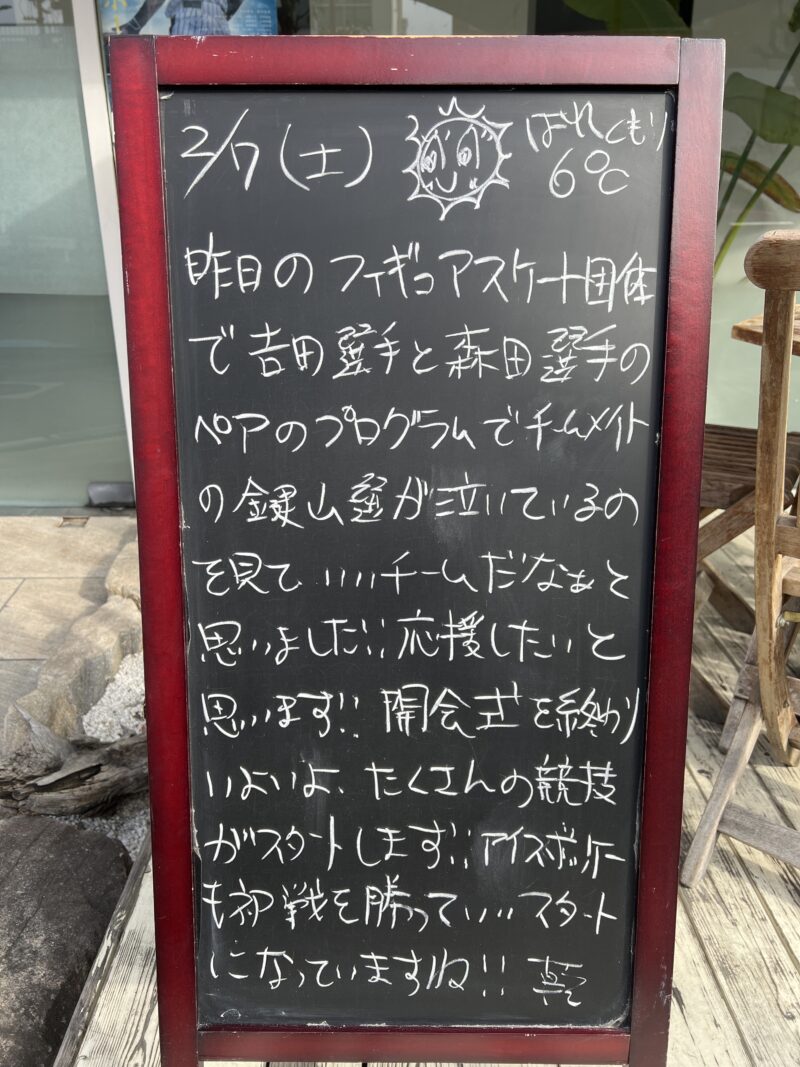 2/7(土) はれくもり
6℃
昨日のフィギュアスケート団体
で吉田選手と森田選手の
ペアのプログラムでチームメイト
の鍵山選が泣いているの
を見ていいチームだなぁと
思いました!!応援したいと
思います!!開会式を終わり
いよいよ、たくさんの競技
がスタートします!!アイスホッケー
も初戦を勝っていいスタート
になっていますね!!